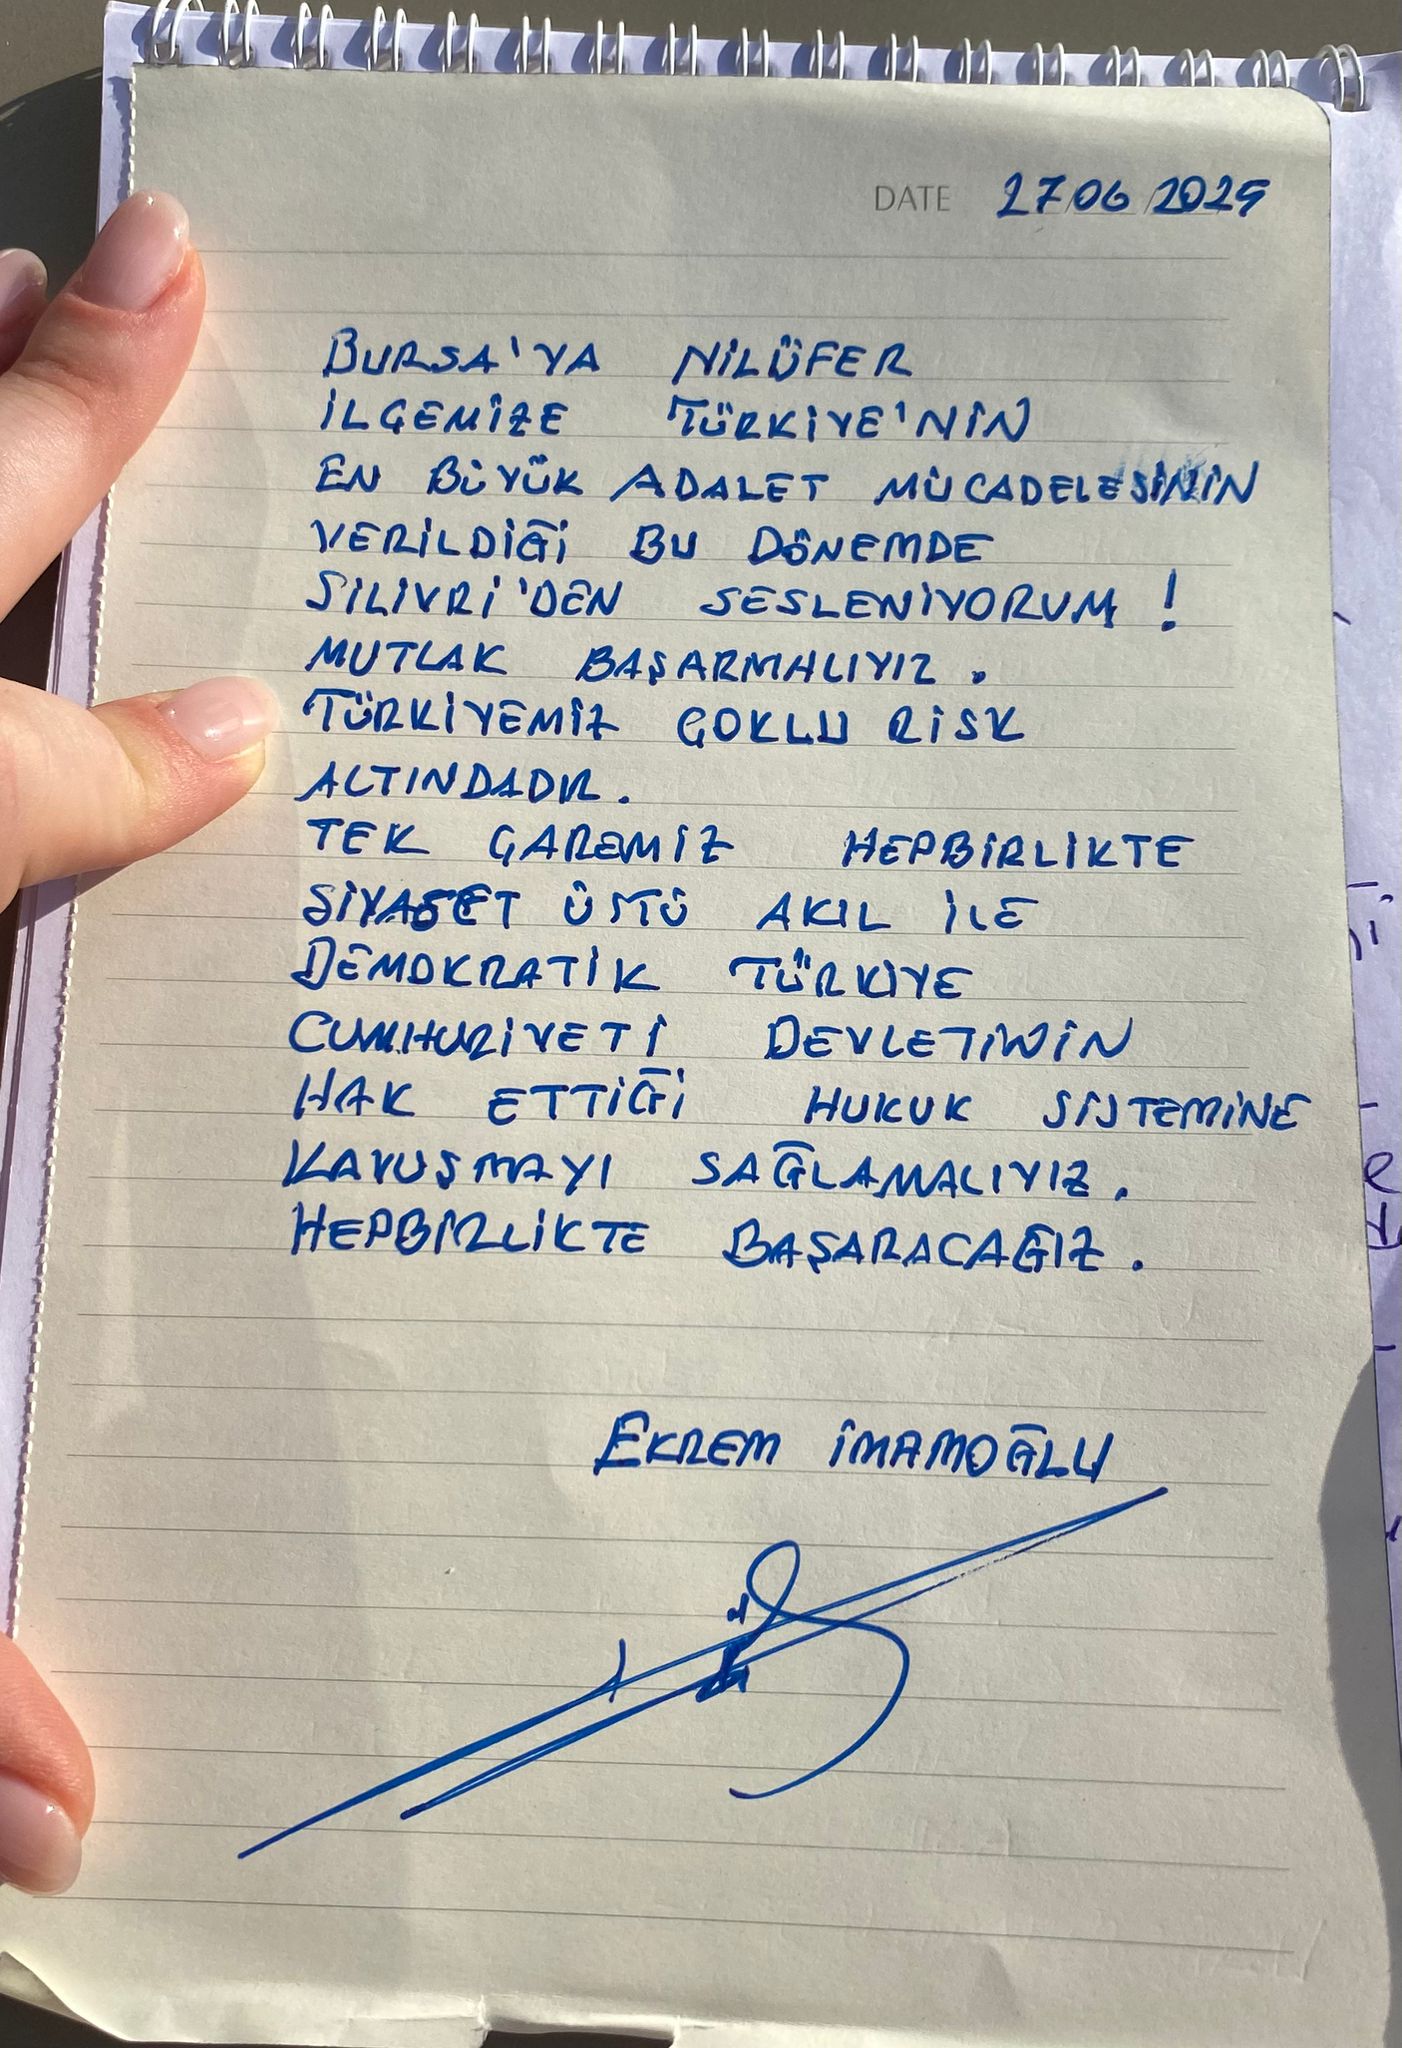 DATE 27/06/2025
BURSA'YA NİLÜFER
İLÇEMİZE TÜRKİYE'NİN
EN BÜYÜK ADALET MÜCADELESİNİN
VERİLDİĞİ BU DÖNEMDE
SİLİVRİ'DEN SESLENİYORUM!
MUTLAK BAŞARMALIYIZ.
TÜRKİYEMİZ ÇOKLU RİSK
ALTINDADIR.
TEK ÇAREMİZ HEPBİRLİKTE
SİYASET ÜSTÜ AKIL İLE
DEMOKRATİK TÜRKİYE
CUMHURİYETİ DEVLETİNİN
HAK ETTİĞİ HUKUK SİSTEMİNE
KAVUŞMAYI SAĞLAMALIYIZ.
HEPBİRLİKTE BAŞARACAĞIZ.
EKREM İMAMOĞLU